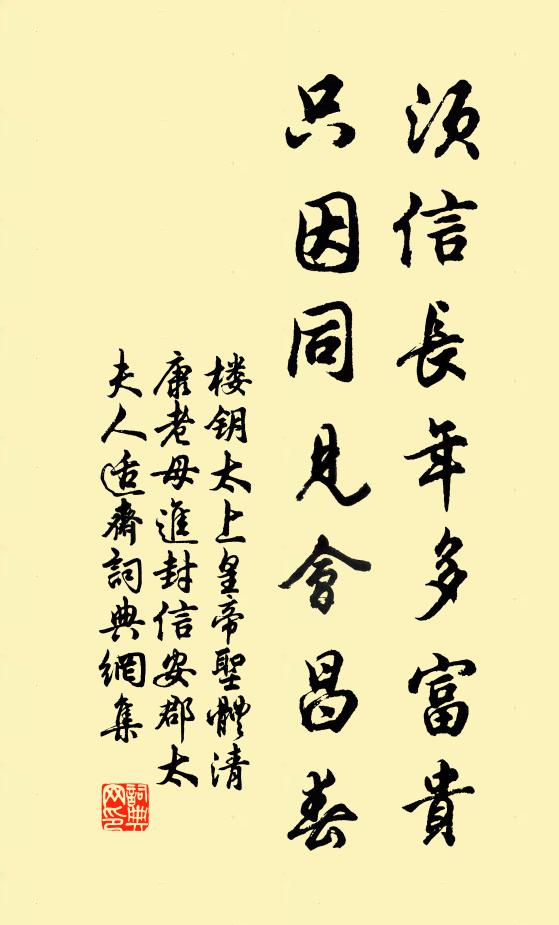 须信長年多富貴
只因同見會昌春
楼钥太上皇帝聖體清
康老母進封信安郡太
夫人适齋詞典網集
詞典
网印